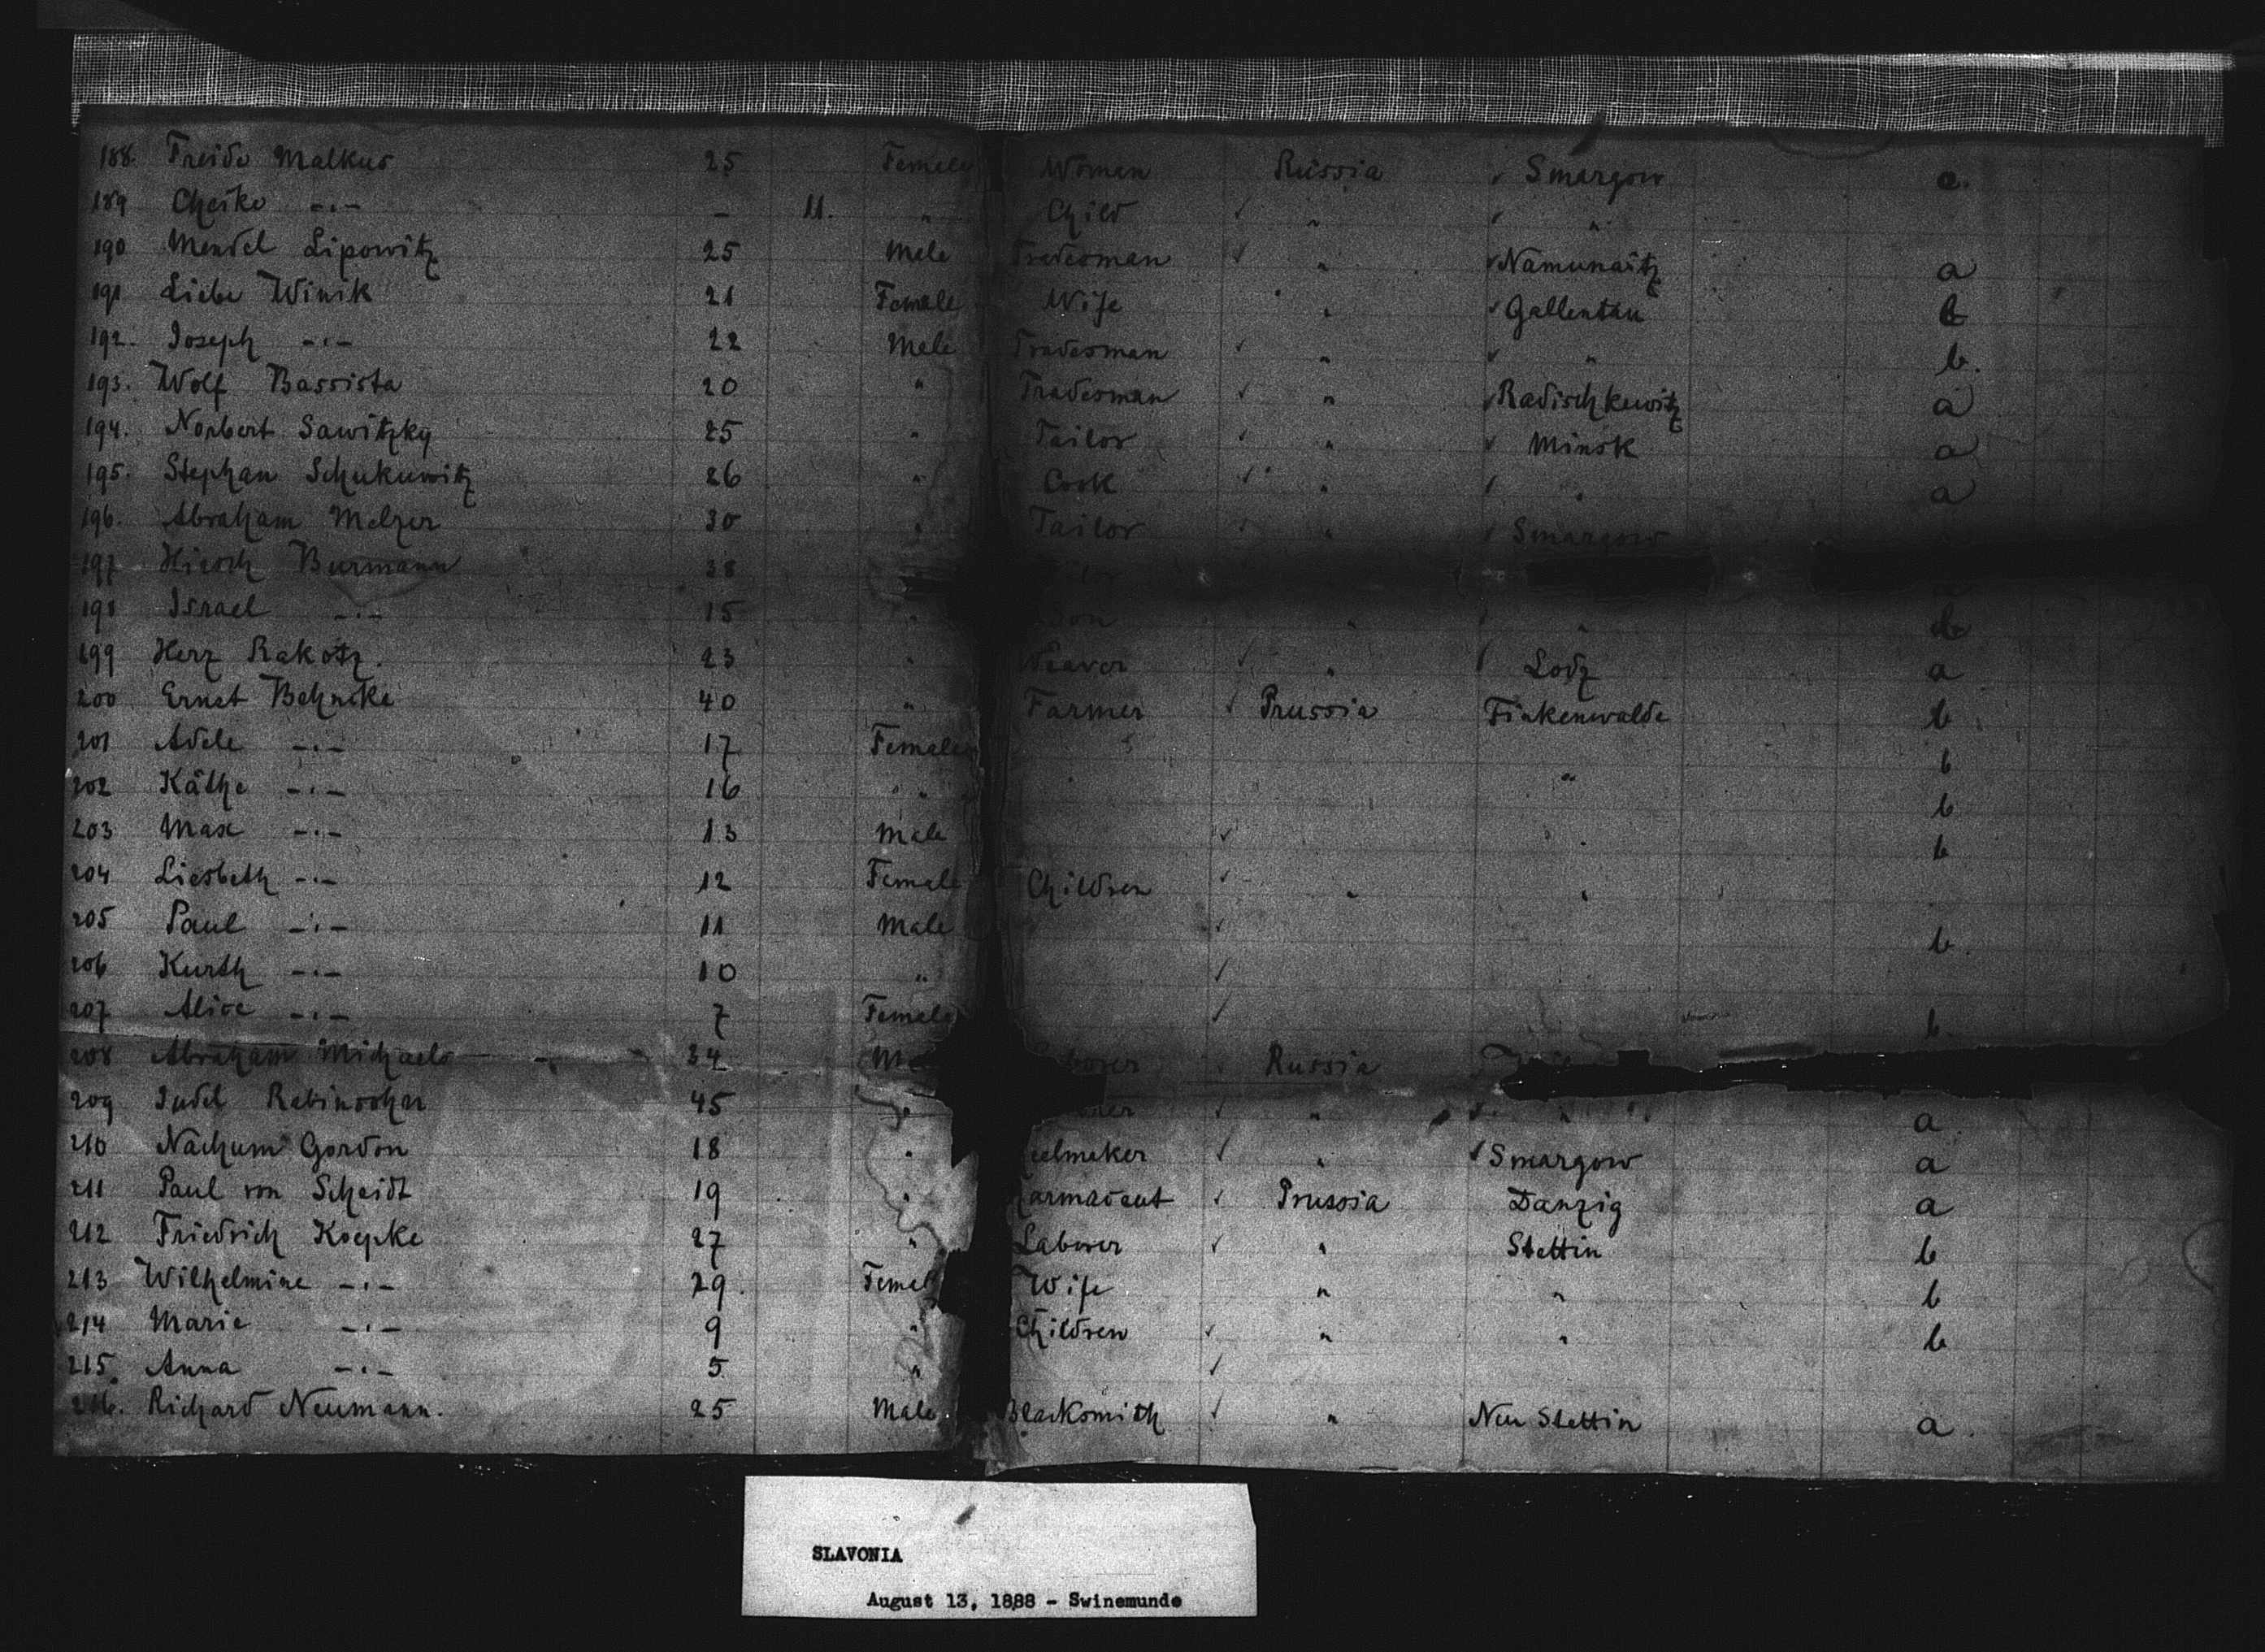 188. Freide Malkus 25 Female Woman Russia ✓ Smargow a.
189 Cheike -·- - 11. " Child ✓ " ✓ "
190 Mendel Lipowitz 25 Male Tradesman ✓ " ✓ Namunaitz a
191 Liebe Winik 21 Female Wife " ✓ Gallentau b
192. Joseph -·- 22 Male Tradesman ✓ " ✓ " b.
193. Wolf Bassista 20 " Tradesman ✓ " ✓ Radischkewitz a
194. Norbert Sawitzky 25 " Tailor ✓ " ✓ Minsk a
195. Stephan Schukuwitz 26 " Cook ✓ " ✓ " a
196. Abraham Melzer 30 " Tailor ✓ " ✓ Smargow
197 Hirsch Burmann 38
198 Israel -·- 15 " Son " ✓ " b
199 Herz Rakotz. 23 " Weaver ✓ " ✓ Lodz a
200 Ernst Behnike 40 " Farmer ✓ Prussia Finkenwalde b
201 Adele -·- 17 Female b
202 Käthe -·- 16 " " b
203 Max -·- 13 Male ✓ " b
204 Liesbeth -·- 12 Female Children ✓ " "
205 Paul -·- 11 Male ✓ b.
206 Kurth -·- 10 " ✓
207 Alice -·- 7 Female ✓ b.
208 Abraham Michaels 34 Ma borer Russia
209 Judel Rabinschar 45 " ✓ " ✓ " a.
210 Nachum Gordon 18 " eelmaker ✓ " ✓ Smargow a
211 Paul von Scheidt 19 " armaceut ✓ Prussia Danzig a
212 Friedrich Koepke 27 " Laborer ✓ " Stettin b
213 Wilhelmine -·- 29. Femal Wife " " b
214 Marie -·- 9 " Children ✓ " " b
215. Anna -·- 5 " ✓
216. Richard Neumann. 25 Male Blacksmith ✓ " Neu Stettin a.
SLAVONIA
August 13, 1888 - Swinemunde